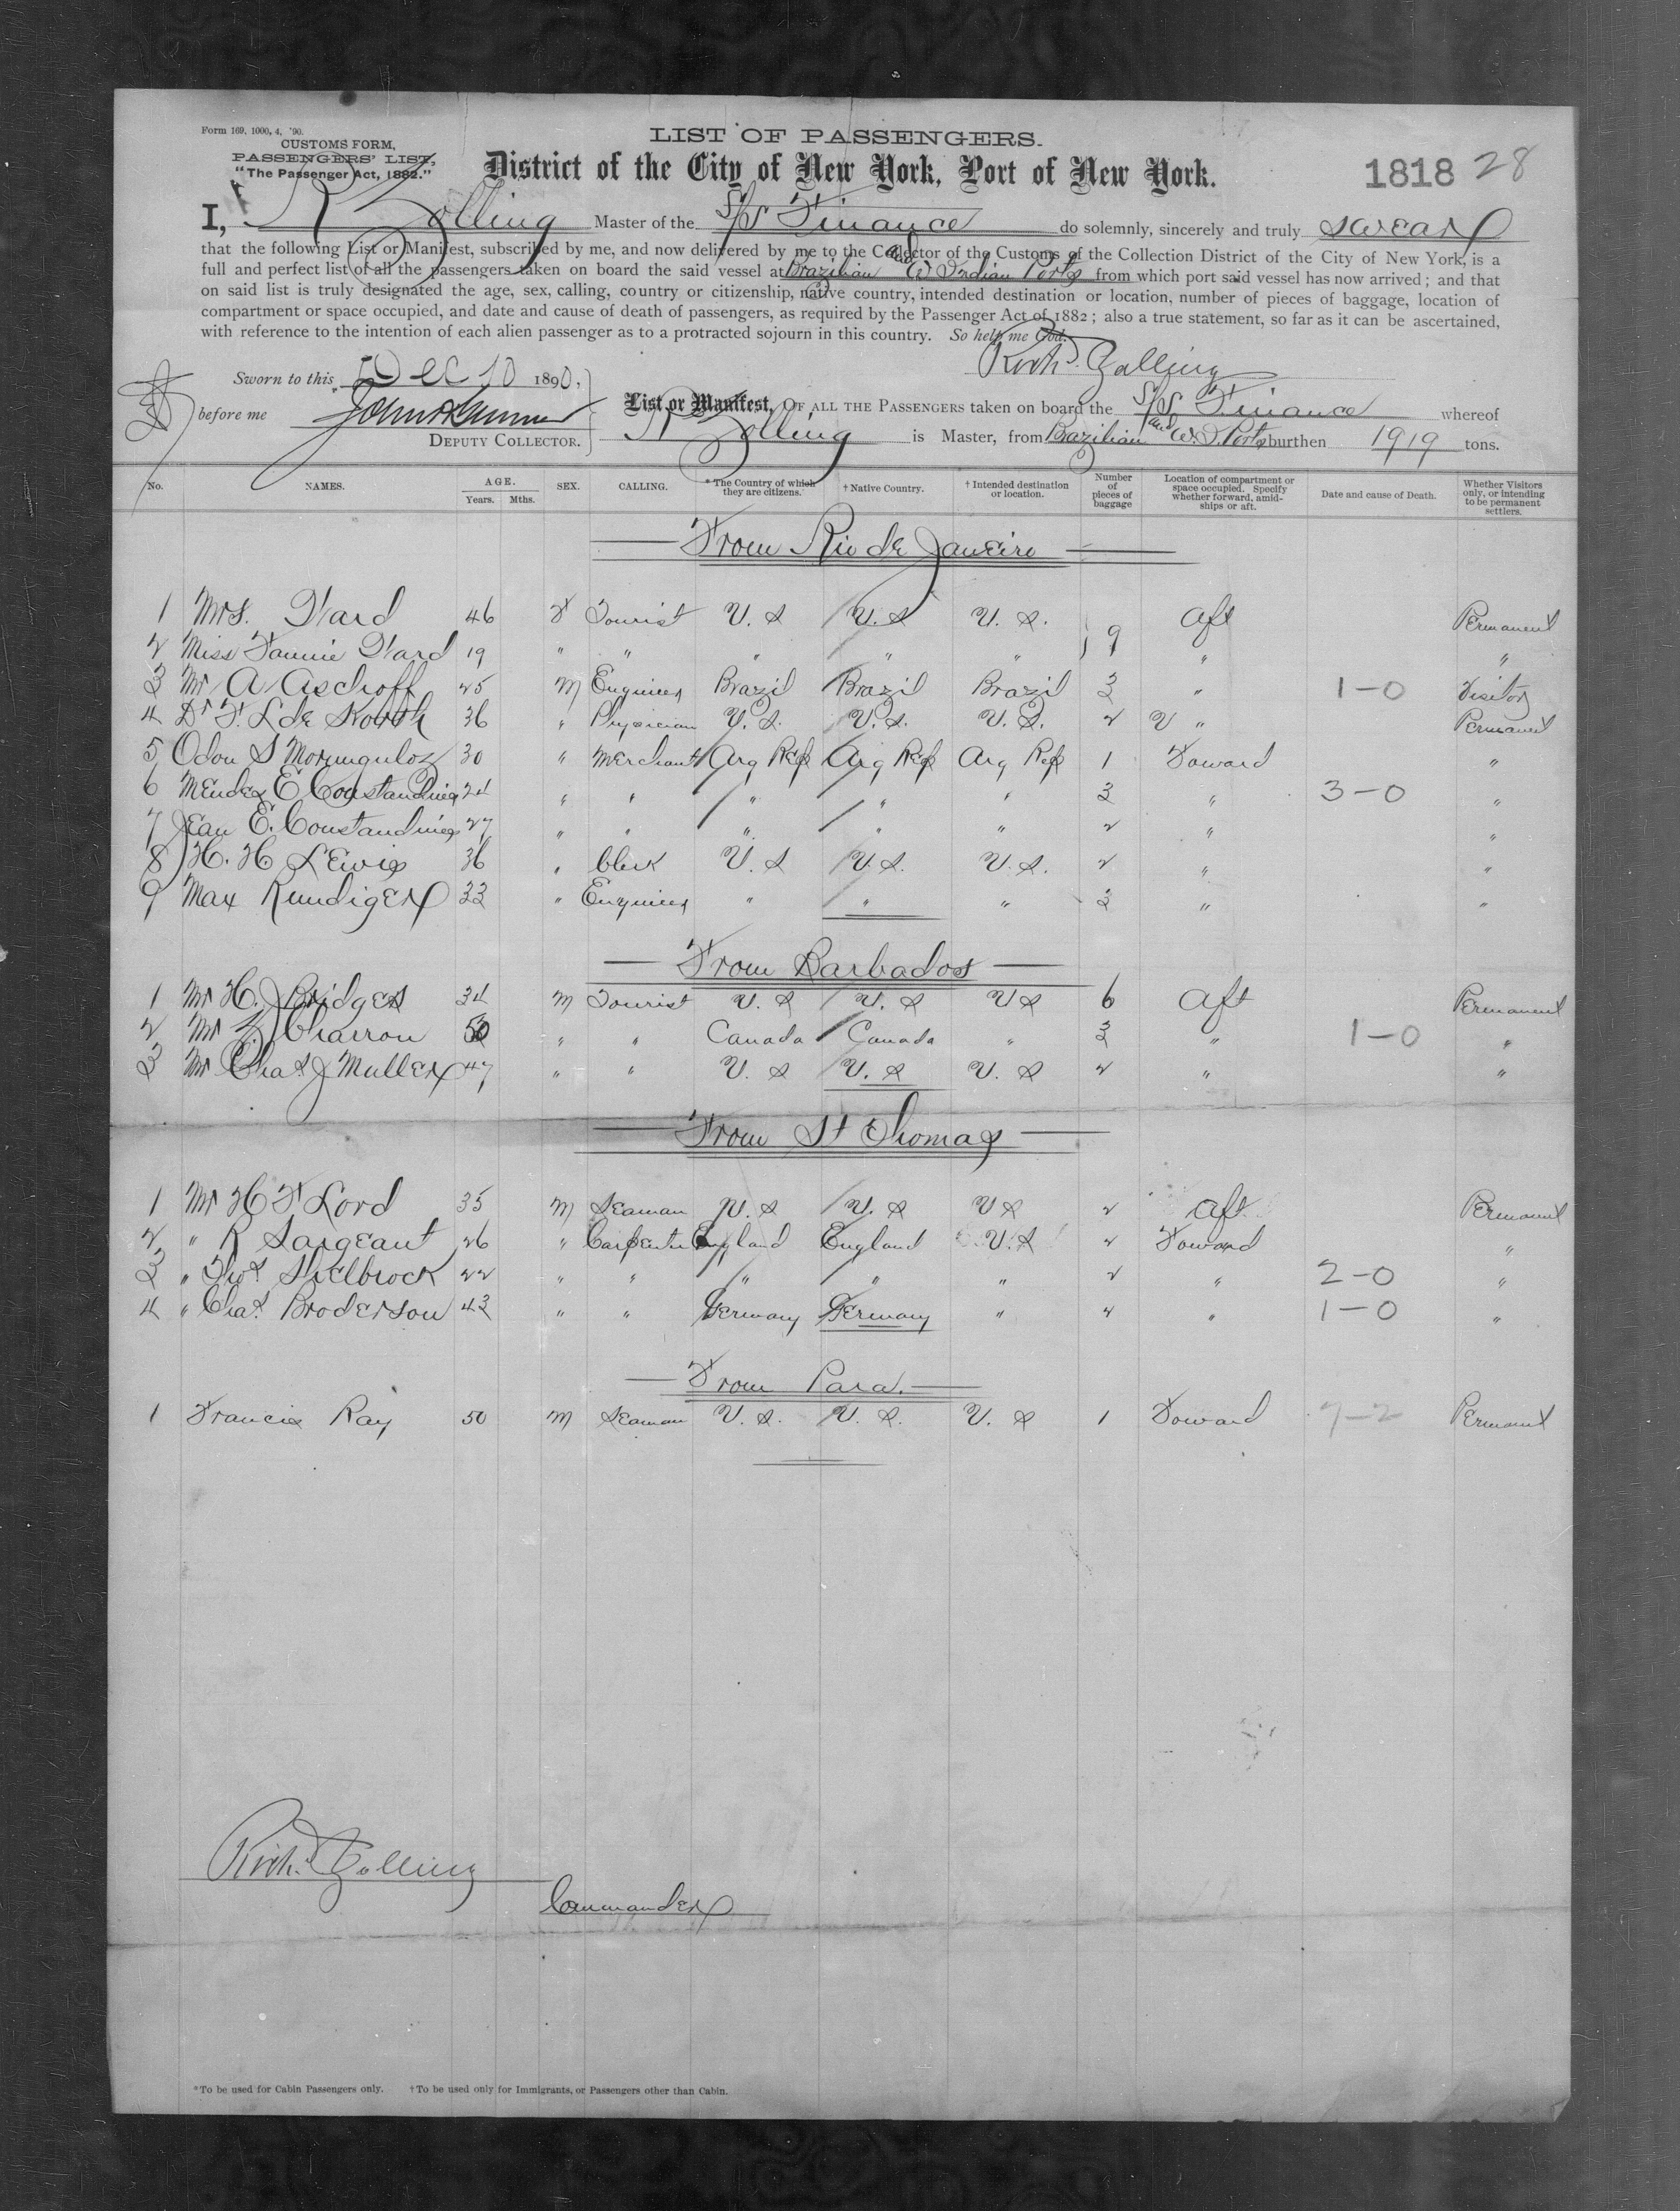 Form 169, 1000, 4, '90.
CUSTOMS FORM,
PASSENGERS' LIST,
"The Passenger Act, 1882."
LIST OF PASSENGERS.
District of the City of New York, Port of New York.
1818 28
I, R Zolling Master of the S/S Finance do solemnly, sincerely and truly swear
that the following List or Manifest, subscribed by me, and now delivered by me to the Collector of the Customs of the Collection District of the City of New York, is a
full and perfect list of all the passengers taken on board the said vessel at Brazilian and W Indian Ports from which port said vessel has now arrived; and that
on said list is truly designated the age, sex, calling, country or citizenship, native country, intended destination or location, number of pieces of baggage, location of
compartment or space occupied, and date and cause of death of passengers, as required by the Passenger Act of 1882; also a true statement, so far as it can be ascertained,
with reference to the intention of each alien passenger as to a protracted sojourn in this country. So help me God.
Richd. Zolling
Sworn to this Dec 10 1890,
before me
DEPUTY COLLECTOR.
List or Manifest, OF ALL THE PASSENGERS taken on board the S/S Finance whereof
R Zolling is Master, from Brazilian and W. I. Ports burthen 1919 tons.
No. NAMES. AGE. Years. Mths. SEX. CALLING. * The Country of which they are citizens. † Native Country. † Intended destination or location. Number of pieces of baggage Location of compartment or space occupied. Specify whether forward, amidships or aft. Date and cause of Death. Whether Visitors only, or intending to be permanent settlers.
From Rio de Janeiro
1 Mrs. Ward 46 F Tourist U. S U. S U. S. 9 Aft Permanent
2 Miss Fannie Ward 19 " " " " " " "
3 Mr A Aschoff 25 M Engineer Brazil Brazil Brazil 3 " 1-0 Visitor
4 Dr F. L de 36 " Physician U. S. U. S. U. S. 2 " Permanent
5 Odon S 30 " Merchant Arg Rep Arg Rep Arg Rep 1 Foward "
6 Mendes E Constandinies 24 " " " " " 3 " 3-0 "
7 Jean E. Constandinies 27 " " " " " 2 " "
8 H. H Lewis 36 " Clerk U. S U. S. U. S. 2 " "
9 Max Rundiger 33 " Engineer " " " 3 " "
From Barbados
1 Mr H. J Bridges 34 M Tourist U. S U. S U S 6 Aft Permanent
2 Mr Z. Charron 50 " " Canada Canada " 3 " 1-0 "
3 Mr Chas J Muller 47 " " U. S U. S U. S 2 " "
From St Thomas
1 Mr H F Lord 35 M Seaman U. S U. S U S 2 Aft Permanent
2 " R Sargeant 26 " Carpenter England England U. S 2 Foward "
3 " Thos Shelbrock 22 " " " " " 2 " 2-0 "
4 " Chas. Broderson 43 " " Germany Germany " 2 " 1-0 "
From Para.
1 Francis Ray 50 M Seaman U. S. U. S. U. S 1 Foward 7-2 Permanent
Richd. Zolling
Commander
* To be used for Cabin Passengers only. † To be used only for Immigrants, or Passengers other than Cabin.